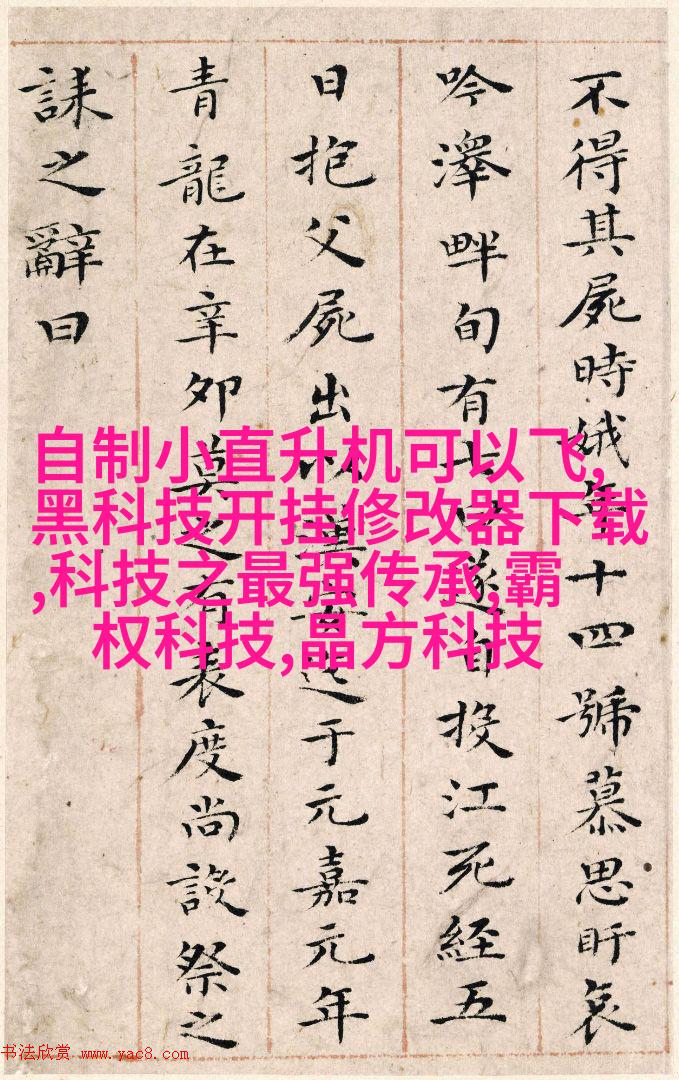 不得其屍時娥年十四號慕思盱哀
吟澤畔旬有七日遂自投江死經五
日抱父屍出以漢安迄于元嘉元年
青龍在辛卯莫之有表度尚設祭之
誄之辭曰
自制小直升机可以飞,
黑科技开挂修改器下载
,科技之最强传承,霸
权科技,晶方科技
书法欣赏 www.yac8.com